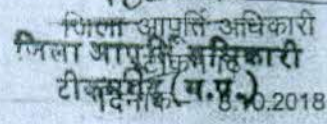 जिला आपूर्ति अधिकारी
जिला आपूर्ति अधिकारी
टीकमगढ़ (म.प्र.)
दिनांक 8.10.2018